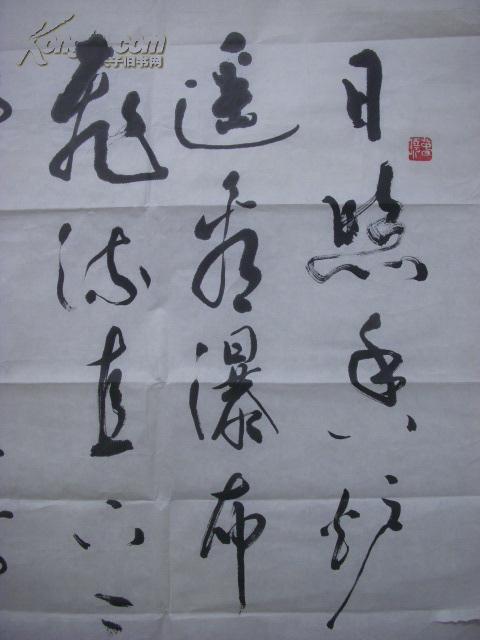 Kongfz.com
孔夫子旧书网
日照香炉
遥看瀑布
飛流直下三